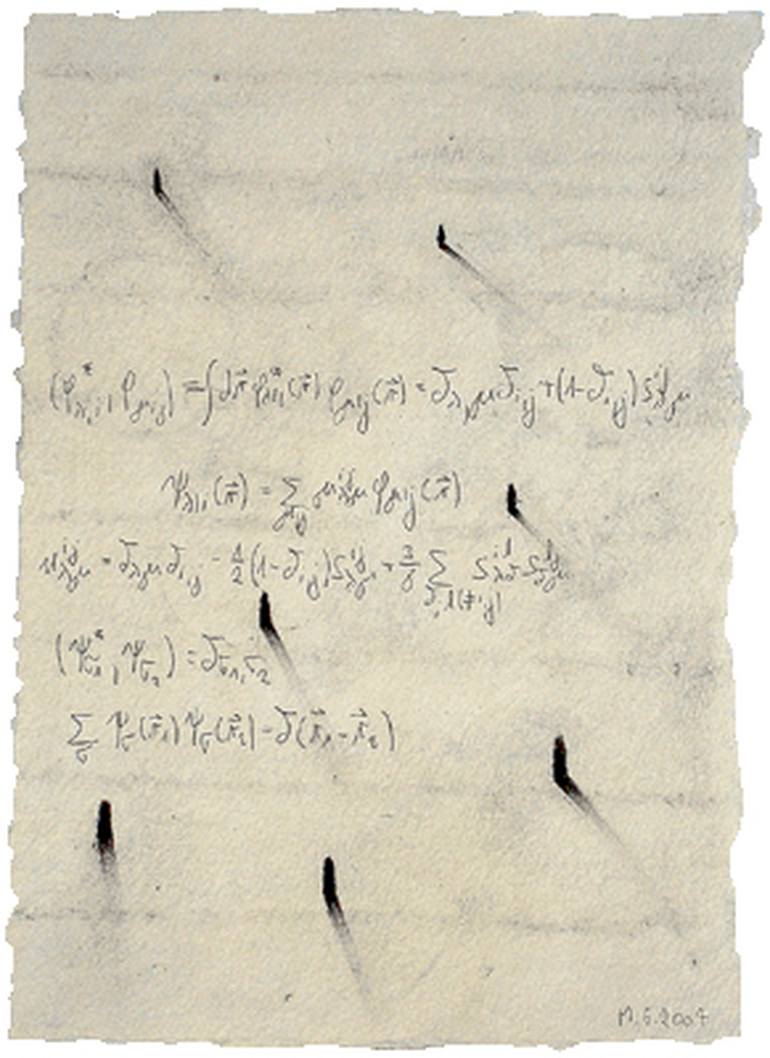 (φ*_{λ,i}, φ_{μ,j}) = ∫ dr⃗ φ*_{λ,i}(r⃗) φ_{μ,j}(r⃗) = δ_{λ,μ} δ_{i,j} + (1-δ_{i,j}) S^{ij}_{λμ}
ψ_{λ,i}(r⃗) = Σ_{μ,j} u^{ij}_{λμ} φ_{μ,j}(r⃗)
u^{ij}_{λμ} = δ_{λμ} δ_{i,j} - 1/2 (1-δ_{i,j}) S^{ij}_{λμ} + 3/8 Σ_{δ,l(≠i,j)} S^{il}_{λδ} S^{lj}_{δμ}
(ψ*_{σ1}, ψ_{σ2}) = δ_{σ1,σ2}
Σ_σ ψ_σ(r⃗_1) ψ_σ(r⃗_2) = δ(r⃗_1 - r⃗_2)
M.G.2007